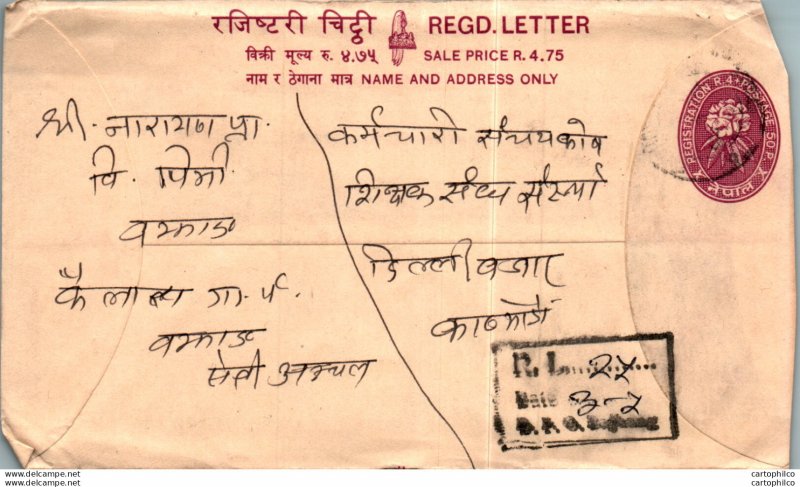 रजिष्टरी चिट्ठी REGD. LETTER
विक्री मूल्य रु. ४.७५ SALE PRICE R. 4.75
नाम र ठेगाना मात्र NAME AND ADDRESS ONLY
REGISTRATION R. 4 + POSTAGE 50 P.
नेपाल
श्री नारायण प्रा.
वि. पिमी
वझाङ
कैलाश गा. पं.
वझाङ
सेती अञ्चल
कर्मचारी संचयकोष
शिक्षक संघ संस्था
डिल्लीवजार
काठमाडौं
R. L. २५
Date ३-२
D. P. O. Bajhang
cartophilco
cartophilco